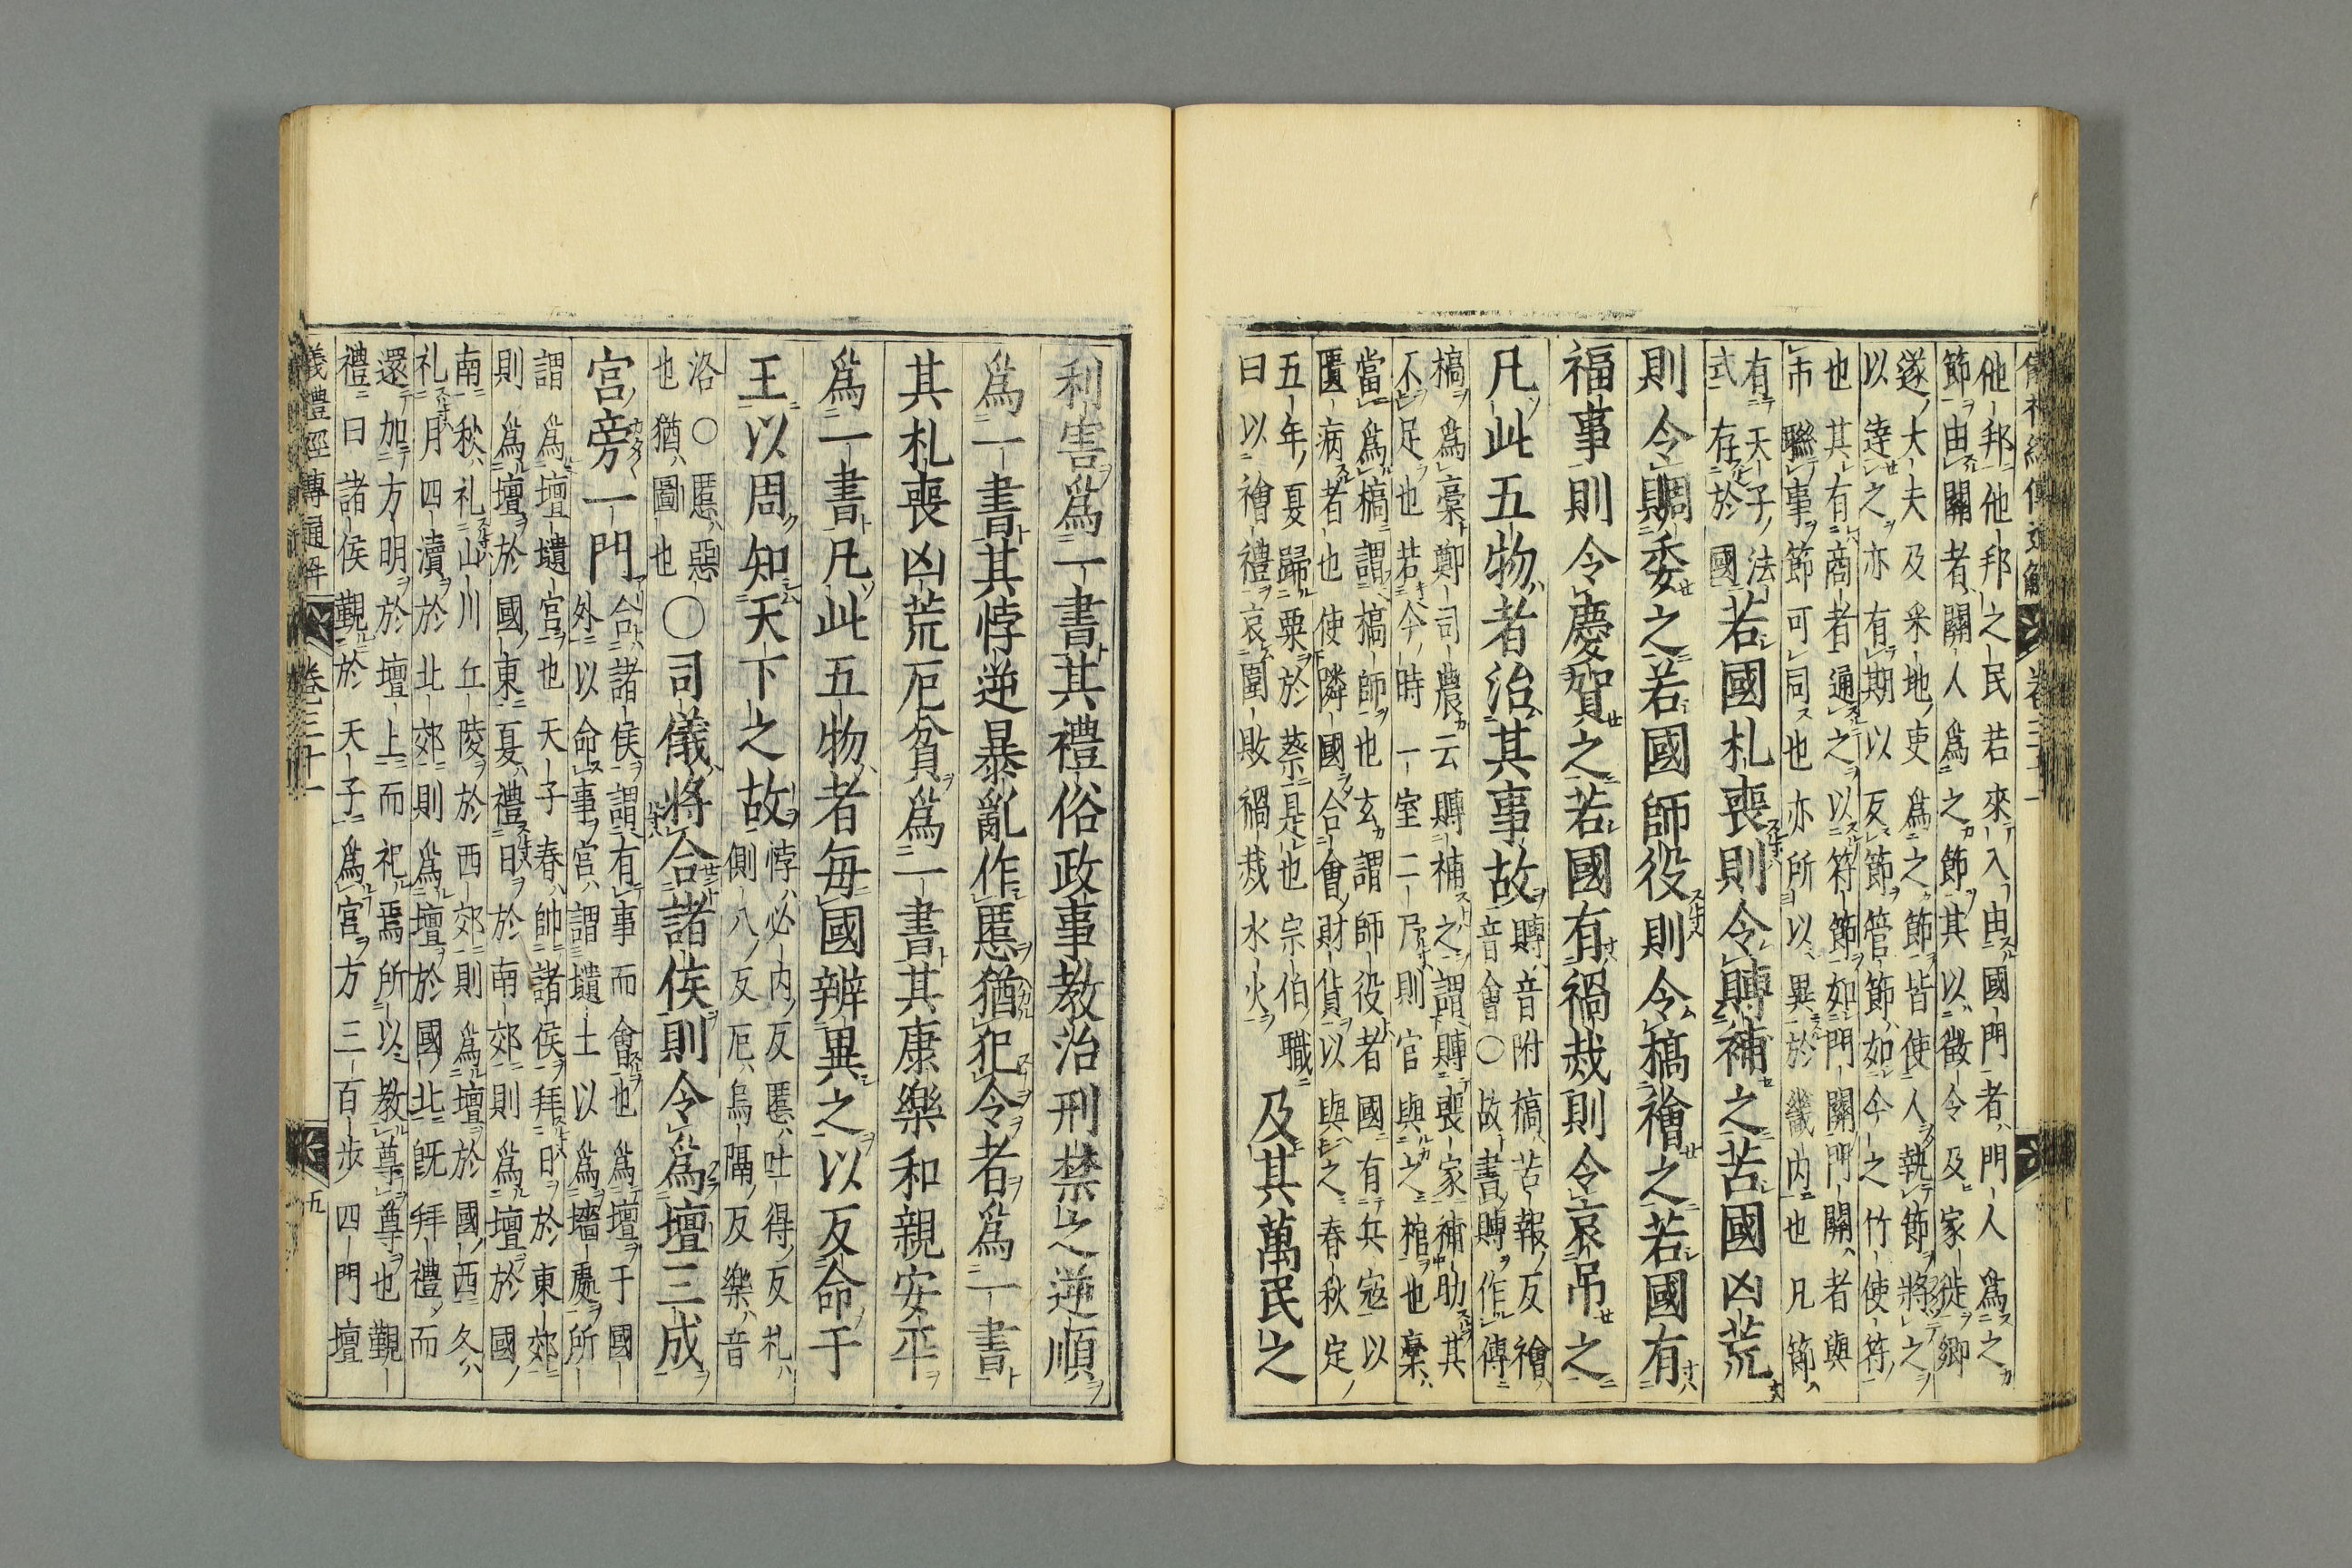 儀禮經傳通解 卷三十一
他邦他邦之民若來入由國門者門人爲之
節由關者關人爲之節其以徵令及家徙鄉
遂大夫及采地吏爲之節皆使人執節將之
以達之亦有期以反節管節如今之竹使符
也其有商者通之以符節如門關門關者與
市聯事節可同也亦所以異於畿内也凡節
有天子法
式存於國
若國札喪則令賻補之若國凶荒
則令賙委之若國師役則令槁禬之若國有
福事則令慶賀之若國有禍烖則令哀吊之
凡此五物者治其事故
賻音附槁苦報反禬
音會○故書賻作傳
槁爲稾鄭司農云賻補之謂賻喪家補助其
不足也若今時一室二尸則官與之棺也稾
當爲槁謂槁師也玄謂師役者國有兵寇以
匱病者也使隣國合會財貨以與之春秋定
五年夏歸粟於蔡是也宗伯職
曰以禬禮哀圍敗禍烖水火
及其萬民之
利害爲一書其禮俗政事教治刑禁之逆順
爲一書其悖逆暴亂作慝猶犯令者爲一書
其札喪凶荒厄貧爲一書其康樂和親安平
爲一書凡此五物者每國辨異之以反命于
王以周知天下之故
悖必内反慝吐得反札
側八反厄烏隔反樂音
洛○慝惡
也猶圖也
○司儀將合諸侯則令爲壇三成
宮旁一門
合諸侯謂有事而會也爲壇于國
外以命事宮謂壝土以爲墻處所
謂爲壇壝宮也天子春帥諸侯拜日於東郊
則爲壇於國東夏禮日於南郊則爲壇於國
南秋礼山川丘陵於西郊則爲壇於國西久
礼月四瀆於北郊則爲壇於國北既拜禮而
還加方明於壇上而祀焉所以教尊尊也覲
禮曰諸侯覲於天子爲宮方三百步四門壇
儀禮經傳通解 卷三十一 五